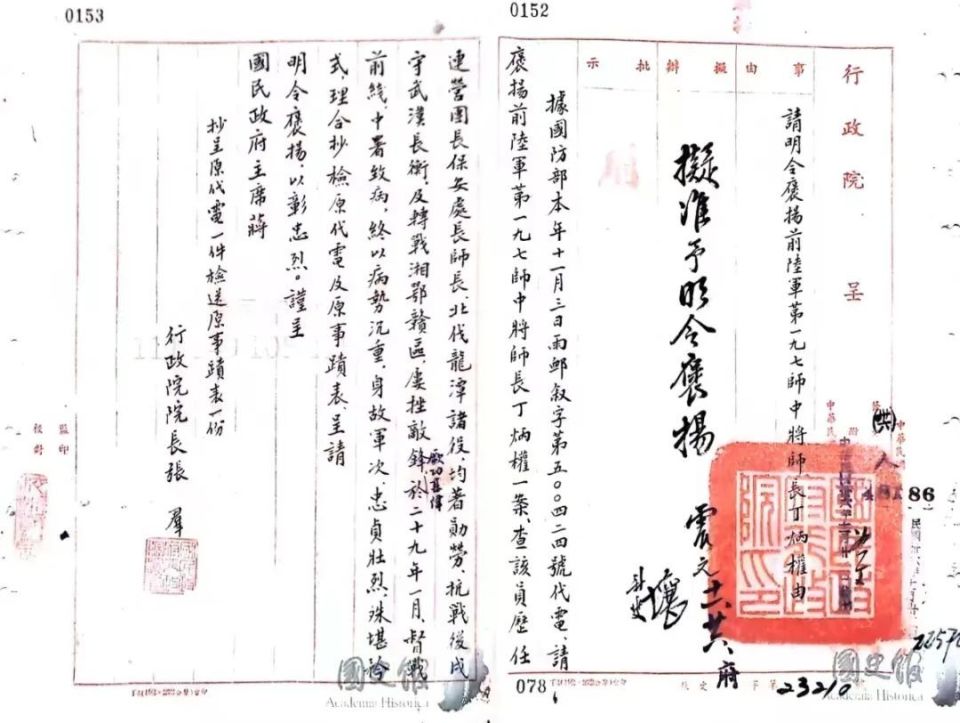 0152
行政院呈
事由
擬辦
批示
請明令褒揚前陸軍第一九七師中將師長丁炳權由
擬准予明令褒揚
據國防部本年十一月三日雨郵敘字第五〇〇四二四號代電、請
褒揚前陸軍第一九七師中將師長丁炳權一案、查該員歷任
078
23210
國史館
Academia Historica
0153
連營團長保安處長師長、北伐龍潭諸役、均著勛勞、抗戰後戍
守武漢長衡、及轉戰湘鄂贛區、屢挫敵鋒、厥功甚偉於二十九年一月、督戰
前綫中署致病、終以病勢沉重、身故軍次、忠貞壯烈、殊堪矜
式理合抄檢原代電及原事蹟表、呈請
明令褒揚、以彰忠烈。謹呈
國民政府主席蔣
抄呈原代電一件檢送原事蹟表一份
行政院院長張羣
監印
校對
國史館
Academia Historica